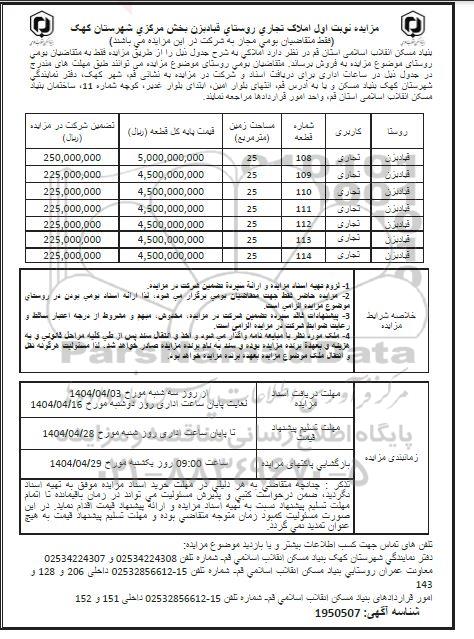 مزایده نوبت اول املاک تجاری روستای قبادبزن بخش مرکزی شهرستان کهک
(فقط متقاضیان بومی مجاز به شرکت در این مزایده می باشند)
بنیاد مسکن انقلاب اسلامی استان قم در نظر دارد املاکی به شرح جدول ذیل را از طریق مزایده فقط به متقاضیان بومی
روستای موضوع مزایده به فروش برساند. متقاضیان بومی روستای موضوع مزایده می توانند طبق مهلت های مندرج
در جدول ذیل در ساعات اداری برای دریافت اسناد و شرکت در مزایده به نشانی قم، شهر کهک، دفتر نمایندگی
شهرستان کهک بنیاد مسکن و یا به آدرس قم، انتهای بلوار امین، ابتدای بلوار غدیر، کوچه شماره 11، ساختمان بنیاد
مسکن انقلاب اسلامی استان قم، واحد امور قراردادها مراجعه نمایند.
روستا کاربری شماره قطعه مساحت زمین (مترمربع) قیمت پایه کل قطعه (ریال) تضمین شرکت در مزایده (ریال)
قبادبزن تجاری 108 25 5,000,000,000 250,000,000
قبادبزن تجاری 109 25 4,500,000,000 225,000,000
قبادبزن تجاری 110 25 4,500,000,000 225,000,000
قبادبزن تجاری 111 25 4,500,000,000 225,000,000
قبادبزن تجاری 112 25 4,500,000,000 225,000,000
قبادبزن تجاری 113 25 4,500,000,000 225,000,000
قبادبزن تجاری 114 25 4,500,000,000 225,000,000
خلاصه شرایط مزایده
1- لزوم تهیه اسناد مزایده و ارائه سپرده تضمین شرکت در مزایده.
2- مزایده حاضر فقط جهت متقاضیان بومی برگزار می شود. لذا ارائه اسناد بومی بودن در روستای
موضوع مزایده الزامی است.
3- پیشنهادات فاقد سپرده تضمین شرکت در مزایده، مخدوش، مبهم و مشروط از درجه اعتبار ساقط و
رعایت ضوابط شرکت در مزایده الزامی است.
4- ملک مورد نظر با مبایعه نامه واگذار می شود و اخذ و انتقال سند پس از طی کلیه مراحل قانونی و به
هزینه و بعهده برنده مزایده بوده و سند به نام برنده مزایده صادر خواهد شد. لذا مسئولیت هرگونه نقل
و انتقال ملک موضوع مزایده بعهده برنده مزایده خواهد بود.
زمانبندی مزایده
مهلت دریافت اسناد مزایده
از روز سه شنبه مورخ 1404/04/03
لغایت پایان ساعت اداری روز دوشنبه مورخ 1404/04/16
مهلت تسلیم پیشنهاد قیمت
تا پایان ساعت اداری روز شنبه مورخ 1404/04/28
بازگشایی پاکتهای مزایده
ساعت 09:00 روز یکشنبه مورخ 1404/04/29
تذکر : چنانچه متقاضی به هر دلیلی در مهلت خرید اسناد مزایده موفق به تهیه اسناد
نگردید، ضمن درخواست کتبی و پذیرش مسئولیت می تواند در زمان باقیمانده تا اتمام
مهلت تسلیم پیشنهاد نسبت به تهیه اسناد مزایده و ارائه پیشنهاد قیمت اقدام نماید. در این
صورت مسئولیت کمبود زمان متوجه متقاضی بوده و مهلت تسلیم پیشنهاد قیمت به هیچ
عنوان تمدید نمی گردد.
تلفن های تماس جهت کسب اطلاعات بیشتر و یا بازدید موضوع مزایده:
دفتر نمایندگی شهرستان کهک بنیاد مسکن انقلاب اسلامی قم- شماره تلفن 02534224308 و 02534224307
معاونت عمران روستایی بنیاد مسکن انقلاب اسلامی قم- شماره تلفن 15-02532856612 داخلی 206 و 128 و
143
امور قراردادهای بنیاد مسکن انقلاب اسلامی قم- شماره تلفن 15-02532856612 داخلی 151 و 152
شناسه آگهی: 1950507